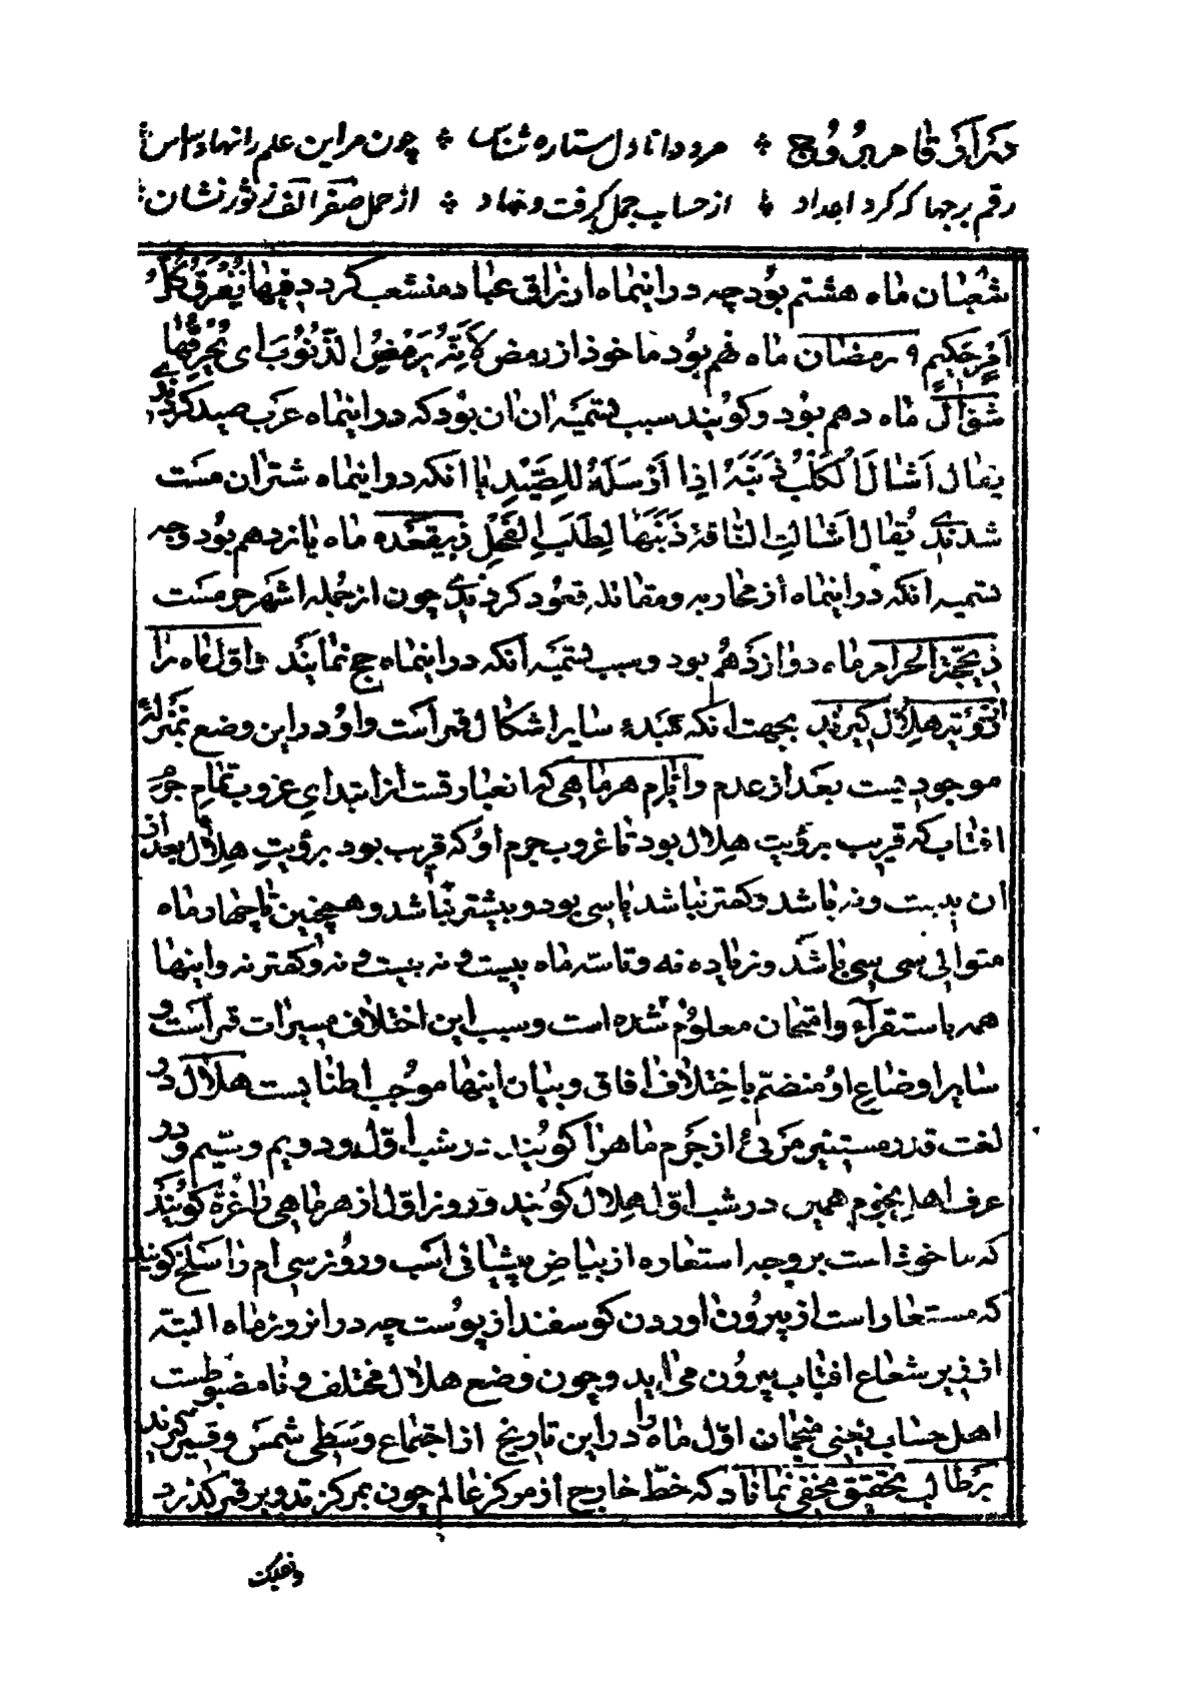 مرد دانا دل ستاره شناس * چون مر این علم را نهاد اساس
رقم برجها که کرد اعداد * از حساب جمل گرفت و نهاد * از حمل صفر الف ز ثور نشان
شعبان ماه هشتم بود چه در اینماه ارزاق عباد منشعب گردد فیها یُفرَقُ کُلُّ
اَمرٍ حَکیم و رمضان ماه نهم بود ماخوذ از رمض لانّه یَرمَضُ الذُّنُوبَ ای یُحرِقُها
شوّال ماه دهم بود و گویند سبب تسمیه ان ان بود که در اینماه عرب صید کردندی
یقال اَشالَ الکَلبُ ذَنَبَهُ اِذا اَرسَلَهُ للصَّیدِ یا انکه در اینماه شتران مست
شدندی یُقال اَشالَتِ النّاقةُ ذَنَبَها لِطَلَبِ الفَحلِ ذیقعده ماه یازدهم بود وجه
تسمیه انکه در اینماه از محاربه و مقاتله قعود کردندی چون از جمله اشهر حرمست
ذیحجّة الحرام ماه دوازدهم بود و سبب تسمیه آنکه در اینماه حج نمایند و اوّل ماه را
از رؤیت هلال گیرند بجهت انکه مبدء سایر اشکال قمر است و او در این وضع بمنزلهٔ
موجودیست بعد از عدم و ایّام هر ماهی که انعبارتست از ابتدای غروب تمام جرم
افتاب که قریب برؤیت هلال بود تا غروب جرم او که قریب بود برؤیت هلال بعد از
ان بیست و نه باشد و کمتر نباشد یا سی بود و بیشتر نباشد و همچنین تا چهار ماه
متوالی سی سی باشد و زیاده نه و تا سه ماه بیست و نه بیست و نه و کمتر نه و اینها
همه باستقرآء و امتحان معلوم شده است و سبب این اختلاف مسیرات قمر است و
سایر اوضاع او منضم باختلاف افاق و بیان اینها موجب اطنابست هلال در
لغت قدر مستنیر مرئی از جرم ماه را گویند در شب اوّل و دویم و سیّم و در
عرف اهل نجوم همین در شب اوّل هلال گویند و روز اوّل از هر ماهی را غُرّة گویند
که ماخوذ است بر وجه استعاره از بیاض پیشانی اسب و روز سی ام را سلخ گویند
که مستعار است از بیرون اوردن گوسفند از پوست چه در انروز ماه البته
از زیر شعاع افتاب بیرون می اید و چون وضع هلال مختلف و نا مضبوطست
اهل حساب یعنی منجمان اوّل ماه را در این تاریخ از اجتماع وسطی شمس و قمر گیرند
بر طالب تحقیق مخفی نماناد که خطّ خارج از مرکز عالم چون بمرکز تدویر قمر گذرد